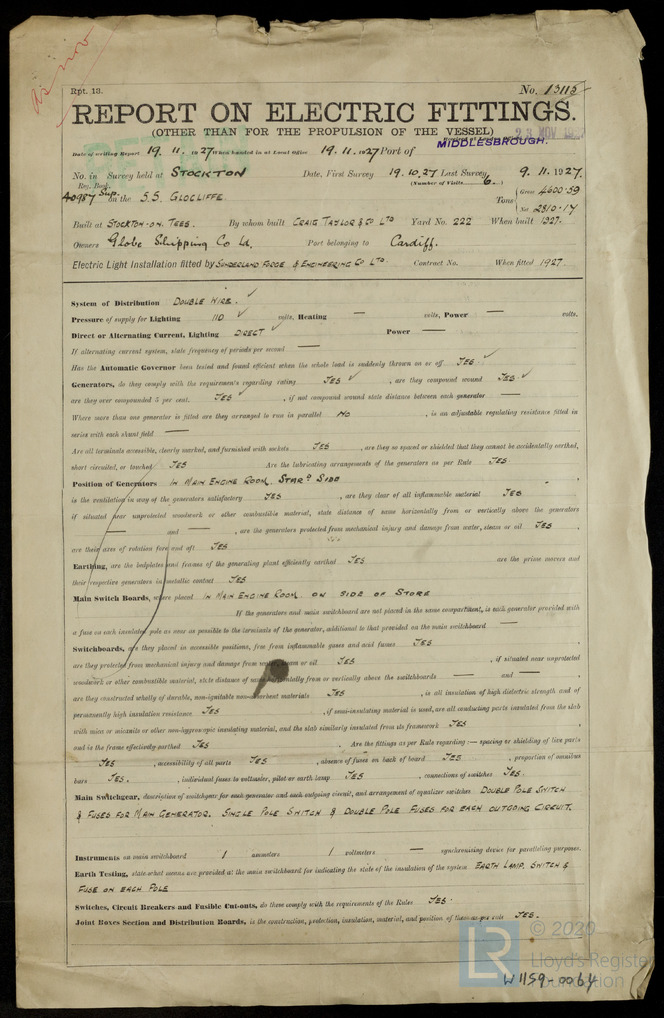 as now
Rpt. 13.
No. 13115
REPORT ON ELECTRIC FITTINGS.
(OTHER THAN FOR THE PROPULSION OF THE VESSEL)
23 NOV 1927
Date of writing Report 19. 11. 1927 When handed in at Local Office 19. 11. 1927 Port of MIDDLESBROUGH.
No. in Survey held at STOCKTON Date, First Survey 19. 10. 27 Last Survey 9. 11. 1927.
Reg. Book. (Number of Visits 6.)
40987 Sup. on the S.S. GLOCLIFFE Tons { Gross 4600.59
Net 2810.17
Built at STOCKTON-ON-TEES. By whom built CRAIG TAYLOR & CO LTD Yard No. 222 When built 1927.
Owners Globe Shipping Co Ld. Port belonging to Cardiff.
Electric Light Installation fitted by SUNDERLAND FORGE & ENGINEERING CO LTD. Contract No. When fitted 1927.
System of Distribution DOUBLE WIRE.
Pressure of supply for Lighting 110 volts, Heating — volts, Power — volts.
Direct or Alternating Current, Lighting DIRECT Power —
If alternating current system, state frequency of periods per second —
Has the Automatic Governor been tested and found efficient when the whole load is suddenly thrown on or off YES
Generators, do they comply with the requirements regarding rating YES, are they compound wound YES
are they over compounded 5 per cent. YES, if not compound wound state distance between each generator —
Where more than one generator is fitted are they arranged to run in parallel NO, is an adjustable regulating resistance fitted in
series with each shunt field —
Are all terminals accessible, clearly marked, and furnished with sockets YES, are they so spaced or shielded that they cannot be accidentally earthed,
short circuited, or touched YES Are the lubricating arrangements of the generators as per Rule YES.
Position of Generators IN MAIN ENGINE ROOM STARD SIDE
is the ventilation in way of the generators satisfactory YES, are they clear of all inflammable material YES
if situated near unprotected woodwork or other combustible material, state distance of same horizontally from or vertically above the generators
— and —, are the generators protected from mechanical injury and damage from water, steam or oil YES,
are their axes of rotation fore and aft YES
Earthing, are the bedplates and frames of the generating plant efficiently earthed YES are the prime movers and
their respective generators in metallic contact YES
Main Switch Boards, where placed IN MAIN ENGINE ROOM ON SIDE OF STORE
If the generators and main switchboard are not placed in the same compartment, is each generator provided with
a fuse on each insulated pole as near as possible to the terminals of the generator, additional to that provided on the main switchboard —
Switchboards, are they placed in accessible positions, free from inflammable gases and acid fumes YES,
are they protected from mechanical injury and damage from water, steam or oil YES, if situated near unprotected
woodwork or other combustible material, state distance of same horizontally from or vertically above the switchboards — and —,
are they constructed wholly of durable, non-ignitable non-absorbent materials YES, is all insulation of high dielectric strength and of
permanently high insulation resistance YES, if semi-insulating material is used, are all conducting parts insulated from the slab
with mica or micanite or other non-hygroscopic insulating material, and the slab similarly insulated from its framework YES,
and is the frame effectively earthed YES. Are the fittings as per Rule regarding :— spacing or shielding of live parts
YES, accessibility of all parts YES, absence of fuses on back of board YES, proportion of omnibus
bars YES., individual fuses to voltmeter, pilot or earth lamp YES, connections of switches YES.
Main Switchgear, description of switchgear for each generator and each outgoing circuit, and arrangement of equalizer switches DOUBLE POLE SWITCH
& FUSES FOR MAIN GENERATOR. SINGLE POLE SWITCH & DOUBLE POLE FUSES FOR EACH OUTGOING CIRCUIT.
Instruments on main switchboard 1 ammeters 1 voltmeters — synchronising device for paralleling purposes.
Earth Testing, state what means are provided at the main switchboard for indicating the state of the insulation of the system EARTH LAMP, SWITCH &
FUSE ON EACH POLE
Switches, Circuit Breakers and Fusible Cut-outs, do these comply with the requirements of the Rules YES.
Joint Boxes Section and Distribution Boards, is the construction, protection, insulation, material, and position of these as per rule YES.
© 2020
LR Lloyd's Register
Foundation
W1159-0064